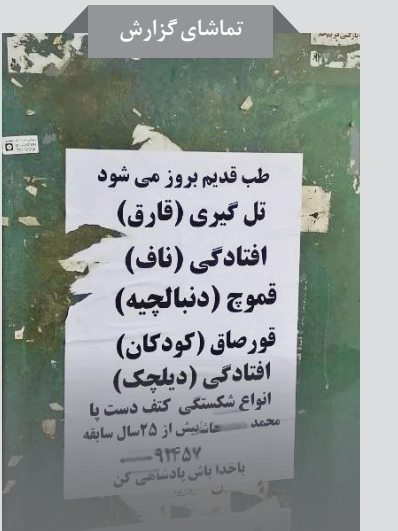 تماشای گزارش
طب قدیم بروز می شود
تل گیری (قارق)
افتادگی (ناف)
قموچ (دنبالچیه)
قورصاق (کودکان)
افتادگی (دیلچک)
انواع شکستگی کتف دست پا
محمد بیش از ۲۵سال سابقه
۹۲۴۵۷
باخدا باش پادشاهی کن